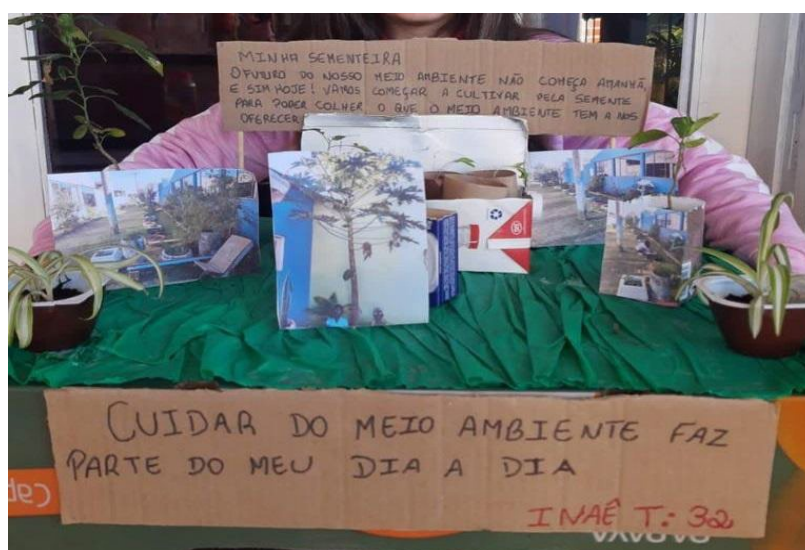 MINHA SEMENTEIRA
O FUTURO DO NOSSO MEIO AMBIENTE NÃO COMEÇA AMANHÃ,
E SIM HOJE! VAMOS COMEÇAR A CULTIVAR PELA SEMENTE
PARA PODER COLHER O QUE O MEIO AMBIENTE TEM A NOS
OFERECER!
CUIDAR DO MEIO AMBIENTE FAZ
PARTE DO MEU DIA A DIA
INAÊ T: 32